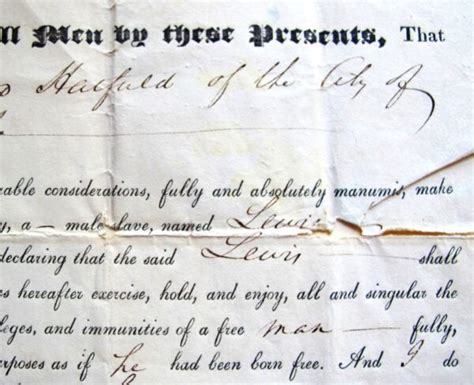 ll Men by these Presents, That
Hatfield of the City of
rable considerations, fully and absolutely manumis, make
y, a male slave, named Lewis
declaring that the said Lewis shall
es hereafter exercise, hold, and enjoy, all and singular the
leges, and immunities of a free man fully,
urposes as if he had been born free. And I do